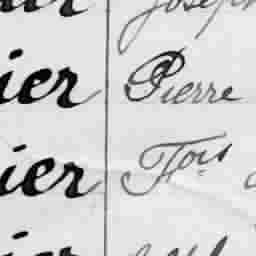 Joseph
ier Pierre
ier Fois